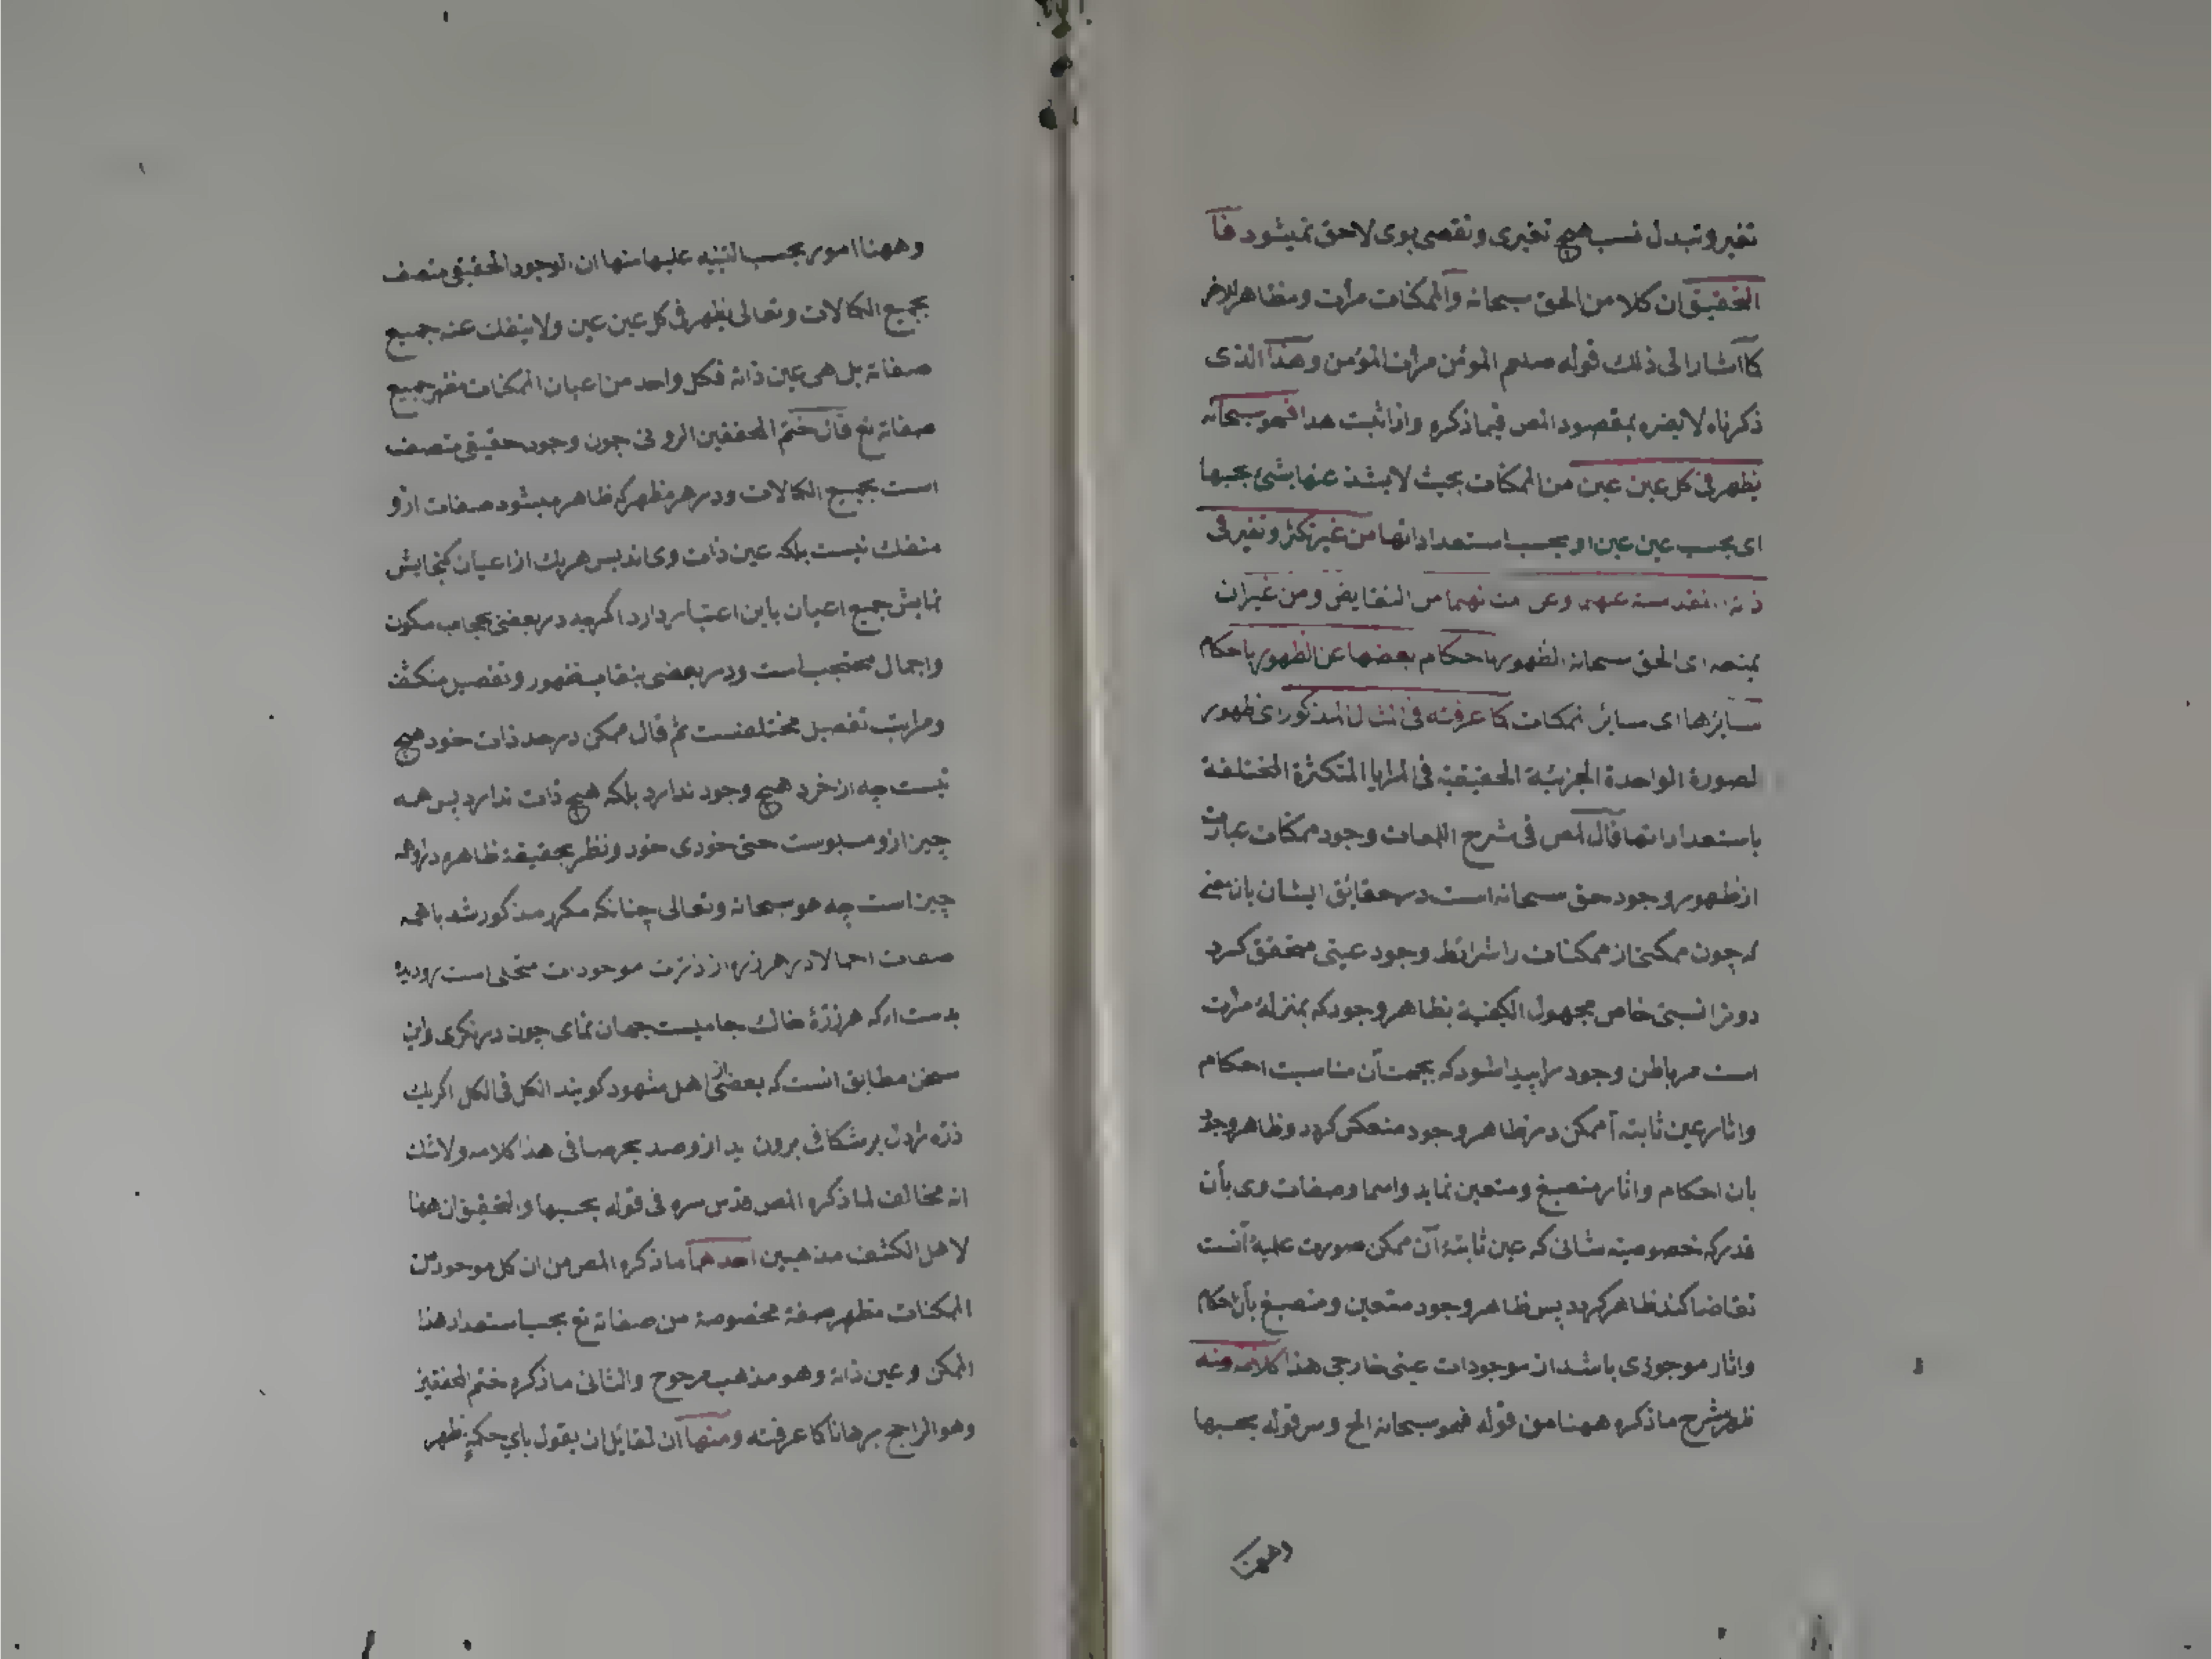 تغیر و تبدل نسب هیچ تغیری و نقصی بوی لاحق نمیشود فا
التحقیق ان کلا من الحق سبحانه والممکنات مرآت و مظاهر للاخر
کما اشار الی ذلک قوله صلعم المؤمن مرآت المؤمن وهذا الذی
ذکرناه لا یضره بمقصود المص فیما ذکره واذا ثبت هذا فهو سبحانه
یظهر فی کل عین عین من الممکنات بحیث لا یشذ عنها بشئ بحبها
ای بحسب عین عین او بحسب استعداداتها من غیر تکثر و تغیر فی
ذاته المقدسة من النقایص و من غیر ان
یمنعه ای الحق سبحانه الظهور باحکام بعضها عن الظهور باحکام
سایرها ای سایر الممکنات کما عرفته فی المثال المذکور ای ظهور
الصورة الواحدة الجزئیة الحقیقیة فی المرایا المتکثرة المختلفة
باستعداداتها قال المص فی شرح اللمعات وجود ممکنات عبارت
از ظهور وجود حق سبحانه است در حقایق ایشان بان معنی
که چون ممکنی از ممکنات را شرائط وجود عینی متحقق کردد
دو ترا نسبتی خاص مجهول الکیفیة بظاهر وجود که بمنزله مرآت
است مر باطن وجود را پیدا شود که بجهت آن مناسبت احکام
واثار عین ثابته آ ممکن در ظاهر وجود منعکس کردد و ظاهر وجود
بان احکام واثار منصبغ و متعین نماید واسما وصفات وی بأن
قدر که خصوصیته شانی که عین ثابتهٔ آن ممکن صورت علیهٔ آنست
تقاضا کند ظاهر کردد پس ظاهر وجود متعین و منصبغ بأن احکام
واثار موجودی باشد از موجودات عینی خارجی هذا کلامه ومنه
ظهر شرح ما ذکره ههنا من قوله فهو سبحانه الخ و سر قوله بحسبها
وههنا امور بحسب التنبیه علیها منها ان الوجود الحقیقی متصف
بجمیع الکمالات وتعالی یظهر فی کل عین عین ولا ینفک عنه جمیع
صفاته بل هی عین ذاته فکل واحد من اعیان الممکنات مظهر جمیع
صفاته تع قال ختم المحققین الرونی چون وجود حقیقی متصف
است بجمیع الکمالات ودر هر مظهر که ظاهر میشود صفات ازو
منفک نیست بلکه عین ذات وی اند پس هر یک از اعیان کنجایش
نمایش جمیع اعیان باین اعتبار دارد اکر چه در بعضی بحجاب مکون
و اجمال محتجب است ودر بعضی بنقاب ظهور و تفصیل منکشف
و مراتب تفصیل مختلفست ثم قال ممکن در حد ذات خود هیچ
نیست چه از خود هیچ وجود ندارد بلکه هیچ ذات ندارد پس همه
چیز ازو مسلوبست حتی خودی خود و نظر بحقیقة ظاهره درو همه
چیز است چه هو سبحانه وتعالی چنانکه مکرر مذکور شد باهمه
صفات اجمالا در هر ذره از ذرات موجودات متجلی است
بدست ار که هر ذرهٔ خاک جامیست جهان نمای چون در نکری واین
سخن مطابق انست که بعضی از اهل شهود کویند الکل فی الکل اکر یک
ذره را دل بر شکافی برون یدازو صد بحر صافی هذا کلامه ولا شک
انه مخالف لما ذکره المص قدس سره فی قوله بحسبها والتحقیق ان ههنا
لاهل الکشف مذهبین احدهما ما ذکره المص من ان کل موجود من
الممکنات مظهر صفة مخصوصة من صفاته تع بحسب استعداد هذا
الممکن و عین ذاته وهو مذهب مرجوح والثانی ما ذکره ختم المحققین
وهو الراجح برهانا کما عرفته ومنها ان لقایل ان یقول بأی حکمة ظهر